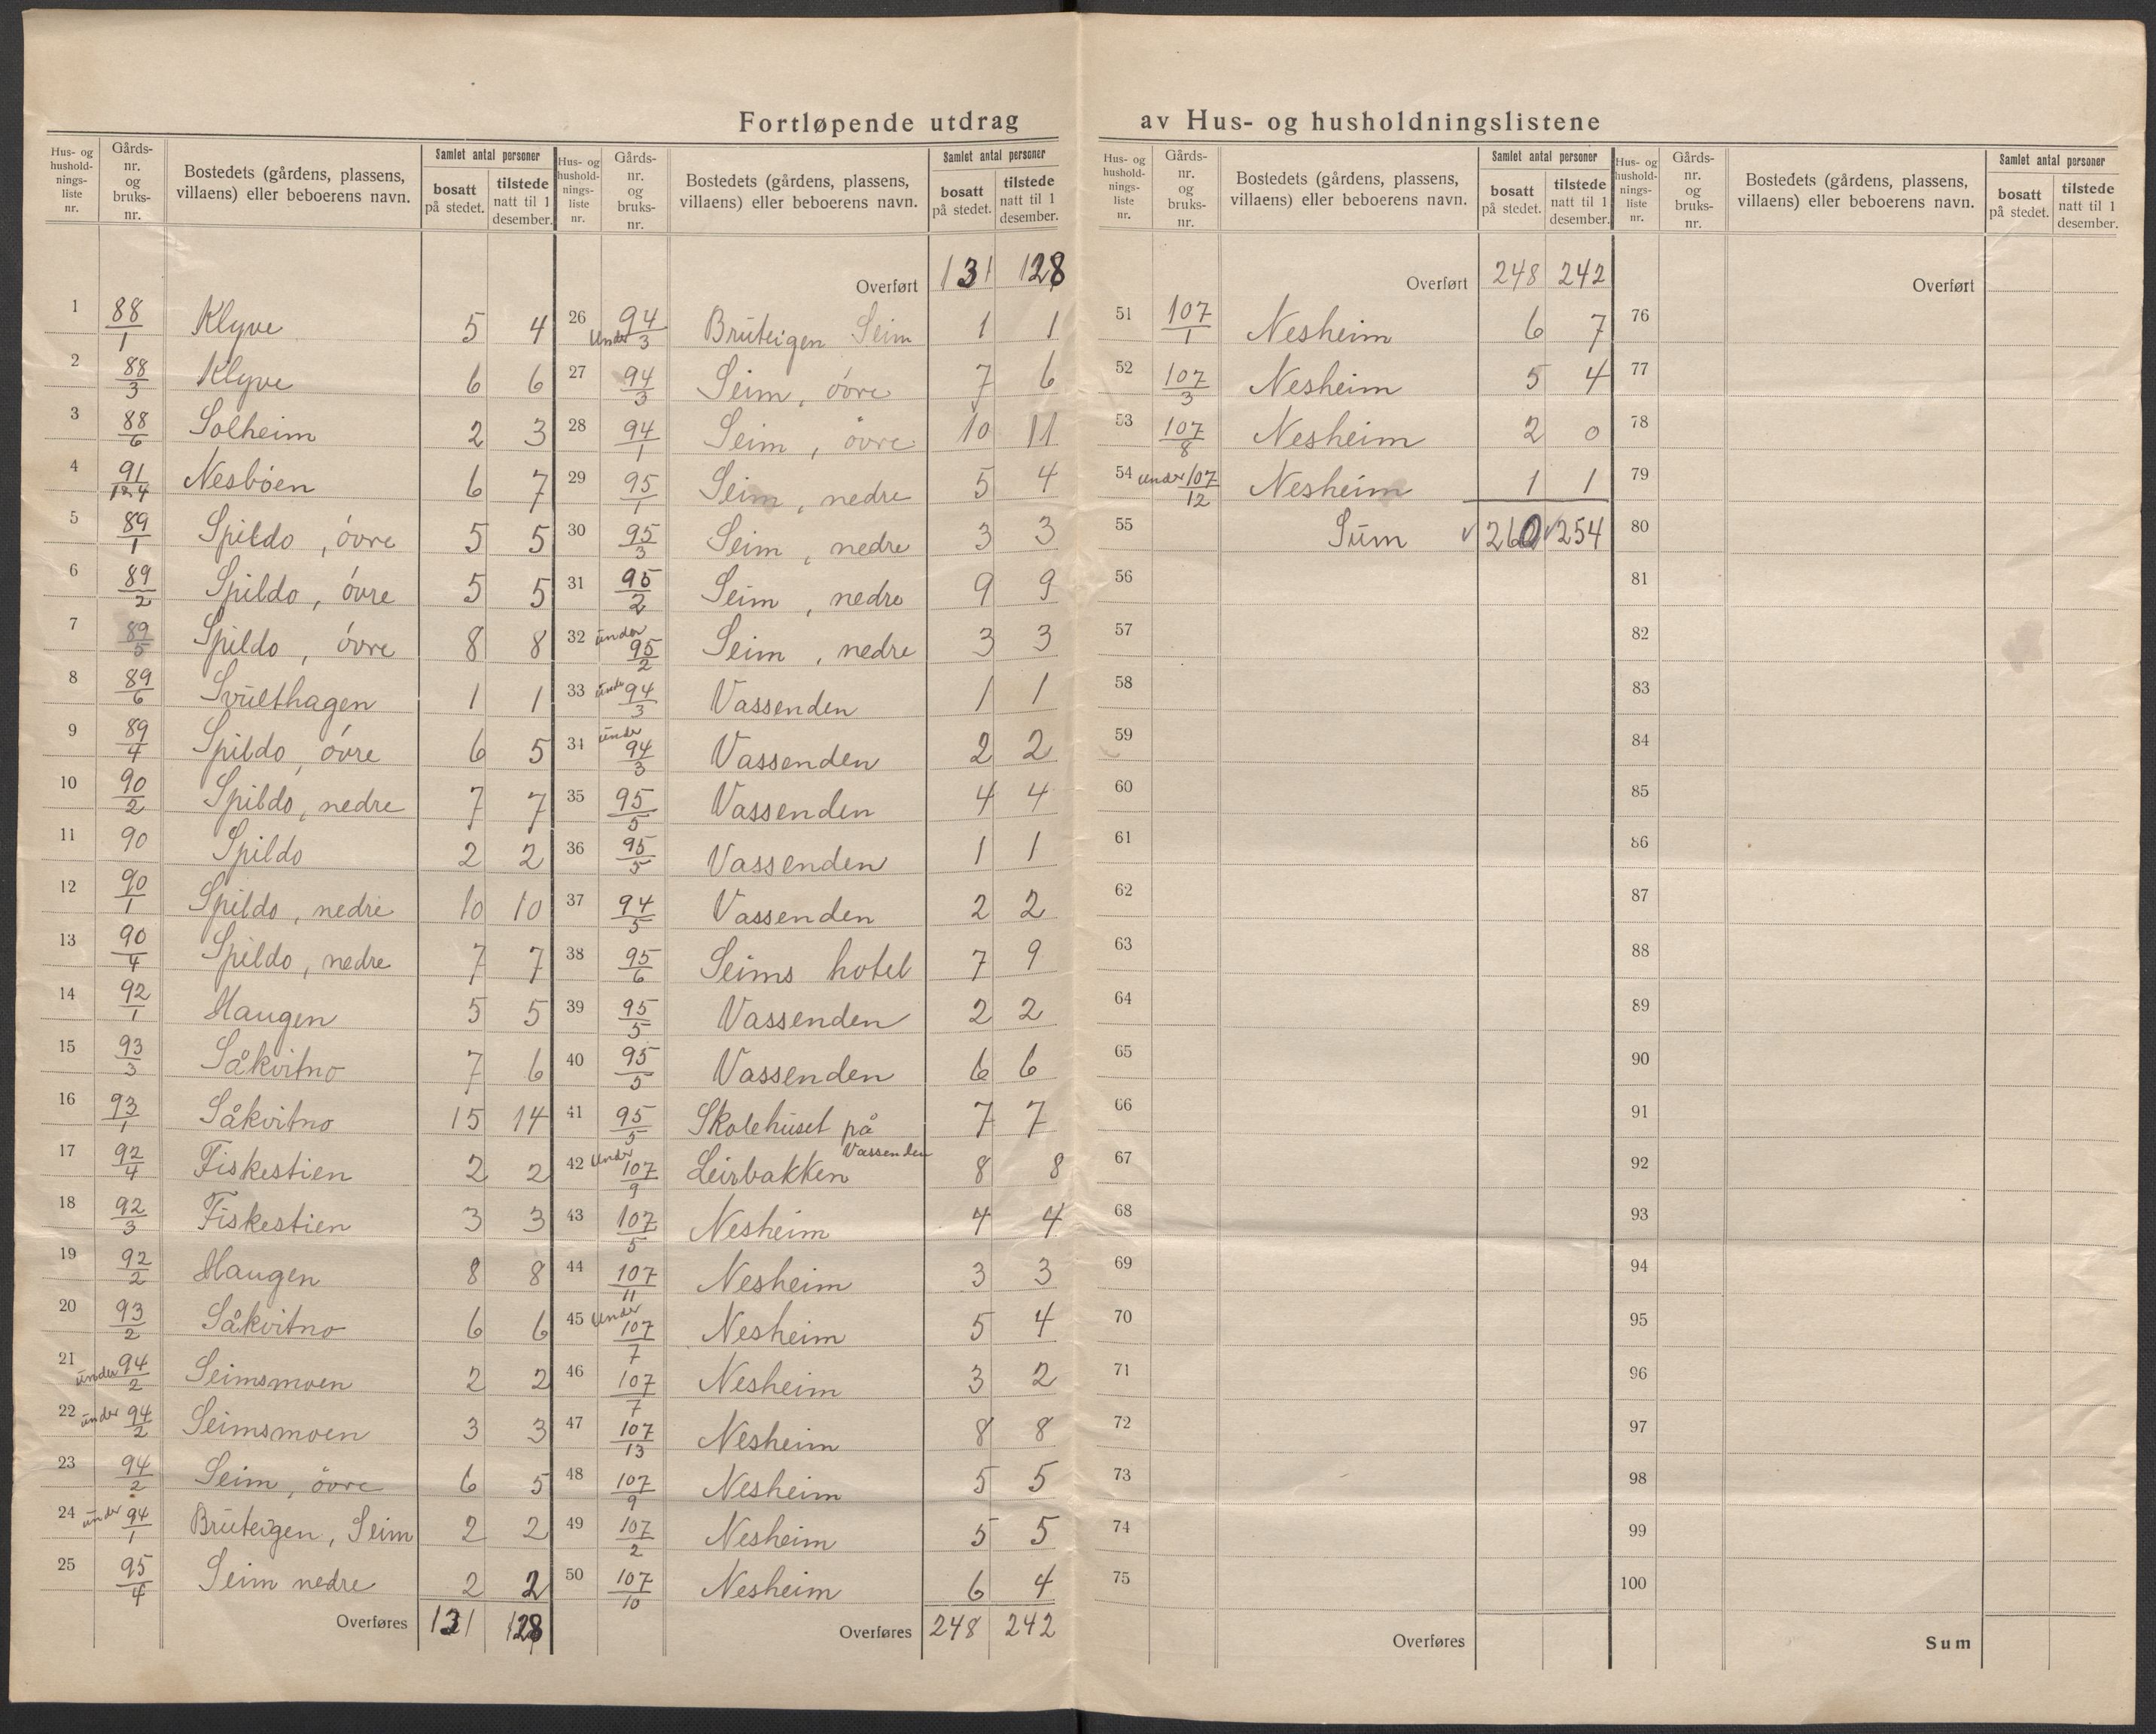 Fortløpende utdrag av Hus- og husholdningslistene
Hus- og husholdnings-liste nr. | Gårds-nr. og bruks-nr. | Bostedets (gårdens, plassens, villaens) eller beboerens navn. | Samlet antal personer | bosatt på stedet. | tilstede natt til 1 desember.
1 88/1 Klyve 5 4
2 88/3 Klyve 6 6
3 88/6 Solheim 2 3
4 91/1 2 4 Nesbøen 6 7
5 89/1 Spildo, øvre 5 5
6 89/2 Spildo, øvre 5 5
7 89/5 Spildo, øvre 8 8
8 89/6 Svulthagen 1 1
9 89/4 Spildo, øvre 6 5
10 90/2 Spildo, nedre 7 7
11 90 Spildo 2 2
12 90/1 Spildo, nedre 10 10
13 90/4 Spildo, nedre 7 7
14 92/1 Haugen 5 5
15 93/3 Såkvitno 7 6
16 93/1 Såkvitno 15 14
17 92/4 Fiskestien 2 2
18 92/3 Fiskestien 3 3
19 92/2 Haugen 8 8
20 93/2 Såkvitno 6 6
21 under 94/2 Seimsmoen 2 2
22 under 94/2 Seimsmoen 3 3
23 94/2 Seim, øvre 6 5
24 under 94/1 Bruteigen, Seim 2 2
25 95/4 Seim nedre 2 2
Overføres 131 128
Hus- og husholdnings-liste nr. | Gårds-nr. og bruks-nr. | Bostedets (gårdens, plassens, villaens) eller beboerens navn. | Samlet antal personer | bosatt på stedet. | tilstede natt til 1 desember.
Overført 131 128
26 under 94/3 Bruteigen Seim 1 1
27 94/3 Seim, øvre 7 6
28 94/1 Seim, øvre 10 11
29 95/1 Seim, nedre 5 4
30 95/3 Seim, nedre 3 3
31 95/2 Seim, nedre 9 9
32 under 95/2 Seim, nedre 3 3
33 under 94/3 Vassenden 1 1
34 under 94/3 Vassenden 2 2
35 95/5 Vassenden 4 4
36 95/5 Vassenden 1 1
37 94/5 Vassenden 2 2
38 95/6 Seims hotel 7 9
39 95/5 Vassenden 2 2
40 95/5 Vassenden 6 6
41 95/5 Skolehuset på Vassenden 7 7
42 under 107/9 Leirbakken 8 8
43 107/5 Nesheim 4 4
44 107/11 Nesheim 3 3
45 under 107/7 Nesheim 5 4
46 107/7 Nesheim 3 2
47 107/13 Nesheim 8 8
48 107/9 Nesheim 5 5
49 107/2 Nesheim 5 5
50 107/10 Nesheim 6 4
Overføres 248 242
Hus- og husholdnings-liste nr. | Gårds-nr. og bruks-nr. | Bostedets (gårdens, plassens, villaens) eller beboerens navn. | Samlet antal personer | bosatt på stedet. | tilstede natt til 1 desember.
Overført 248 242
51 107/1 Nesheim 6 7
52 107/3 Nesheim 5 4
53 107/8 Nesheim 2 0
54 under 107/12 Nesheim 1 1
55 Sum √ 260 √ 254
56
57
58
59
60
61
62
63
64
65
66
67
68
69
70
71
72
73
74
75
Overføres
Hus- og husholdnings-liste nr. | Gårds-nr. og bruks-nr. | Bostedets (gårdens, plassens, villaens) eller beboerens navn. | Samlet antal personer | bosatt på stedet. | tilstede natt til 1 desember.
Overført
76
77
78
79
80
81
82
83
84
85
86
87
88
89
90
91
92
93
94
95
96
97
98
99
100
Sum